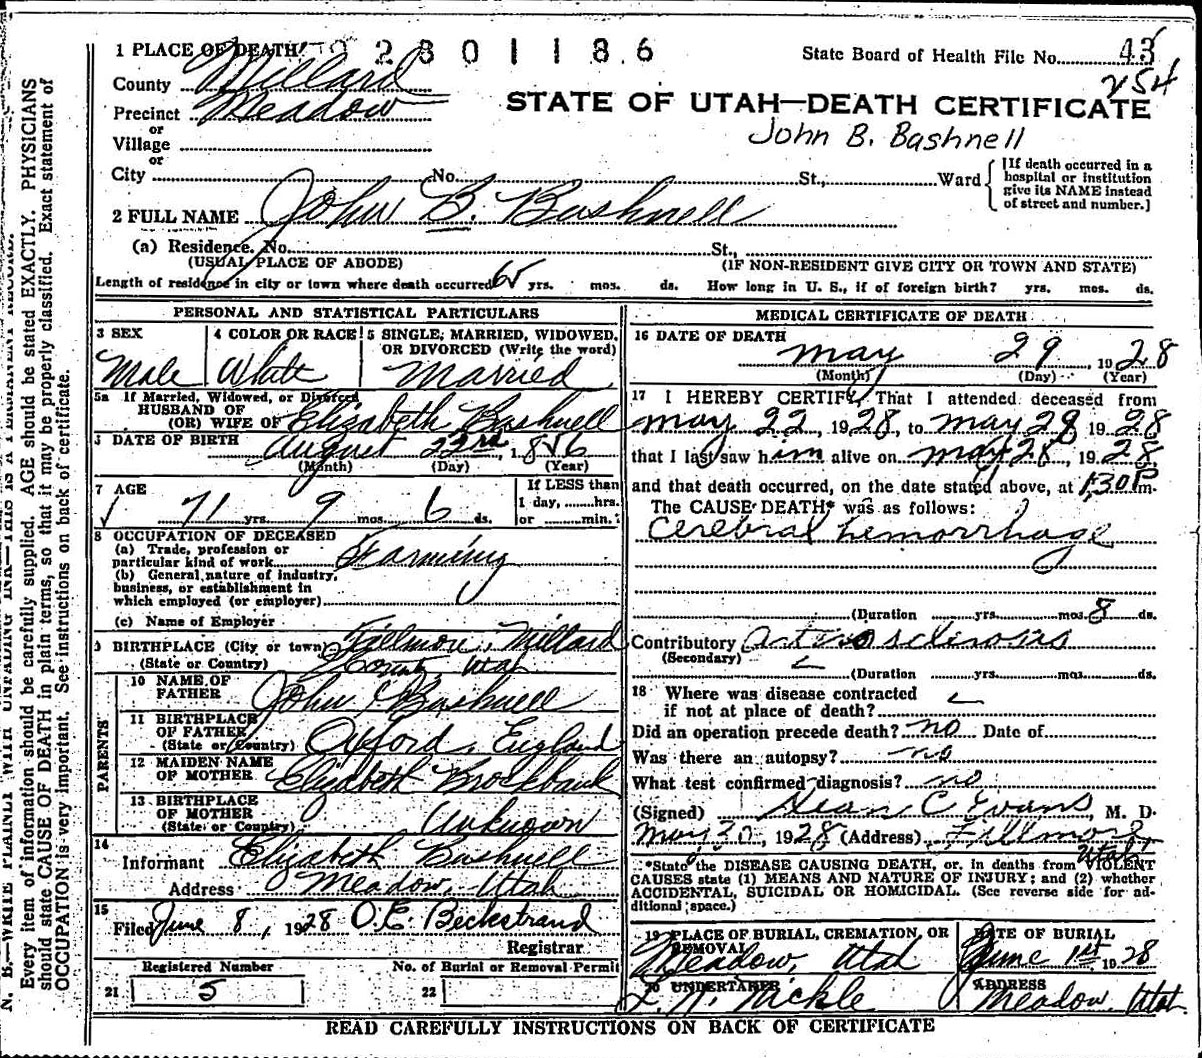 1 PLACE OF DEATH 2801186
State Board of Health File No. 43
254
County Millard
Precinct Meadow
STATE OF UTAH—DEATH CERTIFICATE
or
John B. Bashnell
Village
or
City No. St., Ward
[If death occurred in a
hospital or institution
give its NAME instead
of street and number.]
2 FULL NAME John B. Bushnell
(a) Residence. No. St.,
(USUAL PLACE OF ABODE) (IF NON-RESIDENT GIVE CITY OR TOWN AND STATE)
Length of residence in city or town where death occurred yrs. mos. ds. How long in U. S., if of foreign birth? yrs. mos. ds.
PERSONAL AND STATISTICAL PARTICULARS
3 SEX 4 COLOR OR RACE 5 SINGLE, MARRIED, WIDOWED,
OR DIVORCED (Write the word)
Male White Married
5a If Married, Widowed, or Divorced
HUSBAND OF
(OR) WIFE OF Elizabeth Bushnell
DATE OF BIRTH August 23rd, 1856
(Month) (Day) (Year)
7 AGE If LESS than
1 day, hrs.
71 yrs. 9 mos. 6 ds. or min.
8 OCCUPATION OF DECEASED
(a) Trade, profession or
particular kind of work Farming
(b) General nature of industry,
business, or establishment in
which employed (or employer)
(c) Name of Employer
9 BIRTHPLACE (City or town) Fillmore, Millard
(State or Country) County Utah
PARENTS
10 NAME OF
FATHER John Bushnell
11 BIRTHPLACE
OF FATHER
(State or Country) Oxford, England
12 MAIDEN NAME
OF MOTHER Elizabeth Brockbank
13 BIRTHPLACE
OF MOTHER
(State or Country) Unknown
14
Informant Elizabeth Bushnell
Address Meadow, Utah
15
Filed June 8, 1928 O. E. Beckstrand
Registrar
Registered Number No. of Burial or Removal Permit
21 5 22
MEDICAL CERTIFICATE OF DEATH
16 DATE OF DEATH
May 29 1928
(Month) (Day) (Year)
17 I HEREBY CERTIFY, That I attended deceased from
May 22, 1928, to May 28 1928
that I last saw him alive on May 28, 1928
and that death occurred, on the date stated above, at 1:30 P m.
The CAUSE DEATH* was as follows:
Cerebral hemorrhage
(Duration yrs. mos. 8 ds.
Contributory
(Secondary)
(Duration yrs. mos. ds.
18 Where was disease contracted
if not at place of death?
Did an operation precede death? no Date of
Was there an autopsy? no
What test confirmed diagnosis? no
(Signed) Dean C Evans, M. D.
May 30, 1928 (Address) Fillmore
Utah
*State the DISEASE CAUSING DEATH, or, in deaths from VIOLENT
CAUSES state (1) MEANS AND NATURE OF INJURY; and (2) whether
ACCIDENTAL, SUICIDAL OR HOMICIDAL. (See reverse side for ad-
ditional space.)
19 PLACE OF BURIAL, CREMATION, OR
REMOVAL
Meadow, Utah
DATE OF BURIAL
June 1st 1928
20 UNDERTAKER
L. N. Nickle
ADDRESS
Meadow, Utah
READ CAREFULLY INSTRUCTIONS ON BACK OF CERTIFICATE
Every item of information should be carefully supplied. AGE should be stated EXACTLY. PHYSICIANS
should state CAUSE OF DEATH in plain terms, so that it may be properly classified. Exact statement of
OCCUPATION is very important. See instructions on back of certificate.